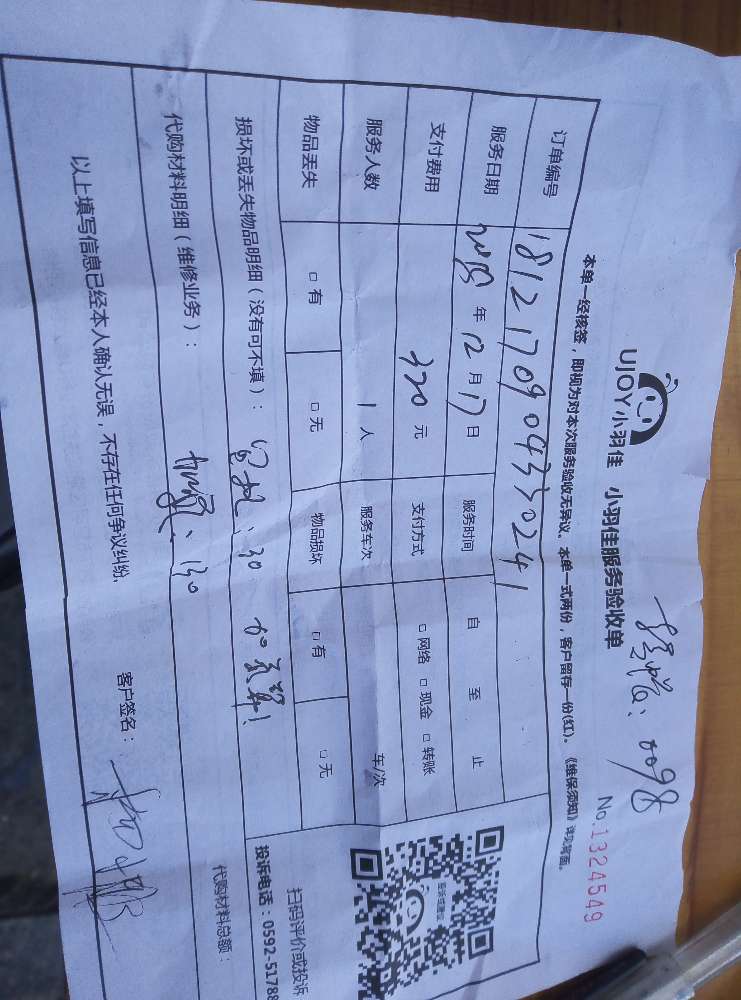 UJOY小羽佳 小羽佳服务验收单
No.1324549
本单一经核签，即视为对本次服务验收无异议。本单一式两份，客户留存一份(红)。《维保须知》详见背面。
订单编号 18121709043

服务日期 2018年12月17日 服务时间 自 至 止
支付费用 320元 支付方式 □网络 □现金 □转账
服务人数 1人 服务车次 车/次
物品丢失 □有 □无 物品损坏 □有 □无
损坏或丢失物品明细（没有可不填）：
代购材料明细（维修业务）：
代购材料总额：
以上填写信息已经本人确认无误，不存在任何争议纠纷，
客户签名：
扫码评价或投诉
投诉电话：0592-51788